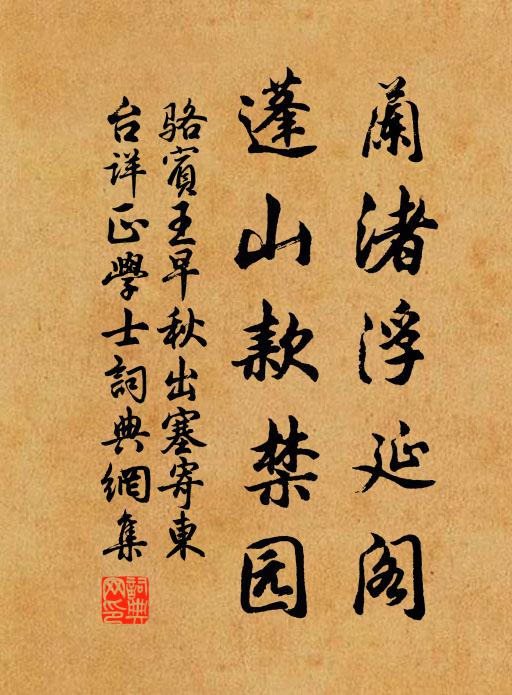 蘭渚浮延阁
蓬山款禁园
骆賓王早秋出塞寄東
台详正學士詞典網集
詞典网印